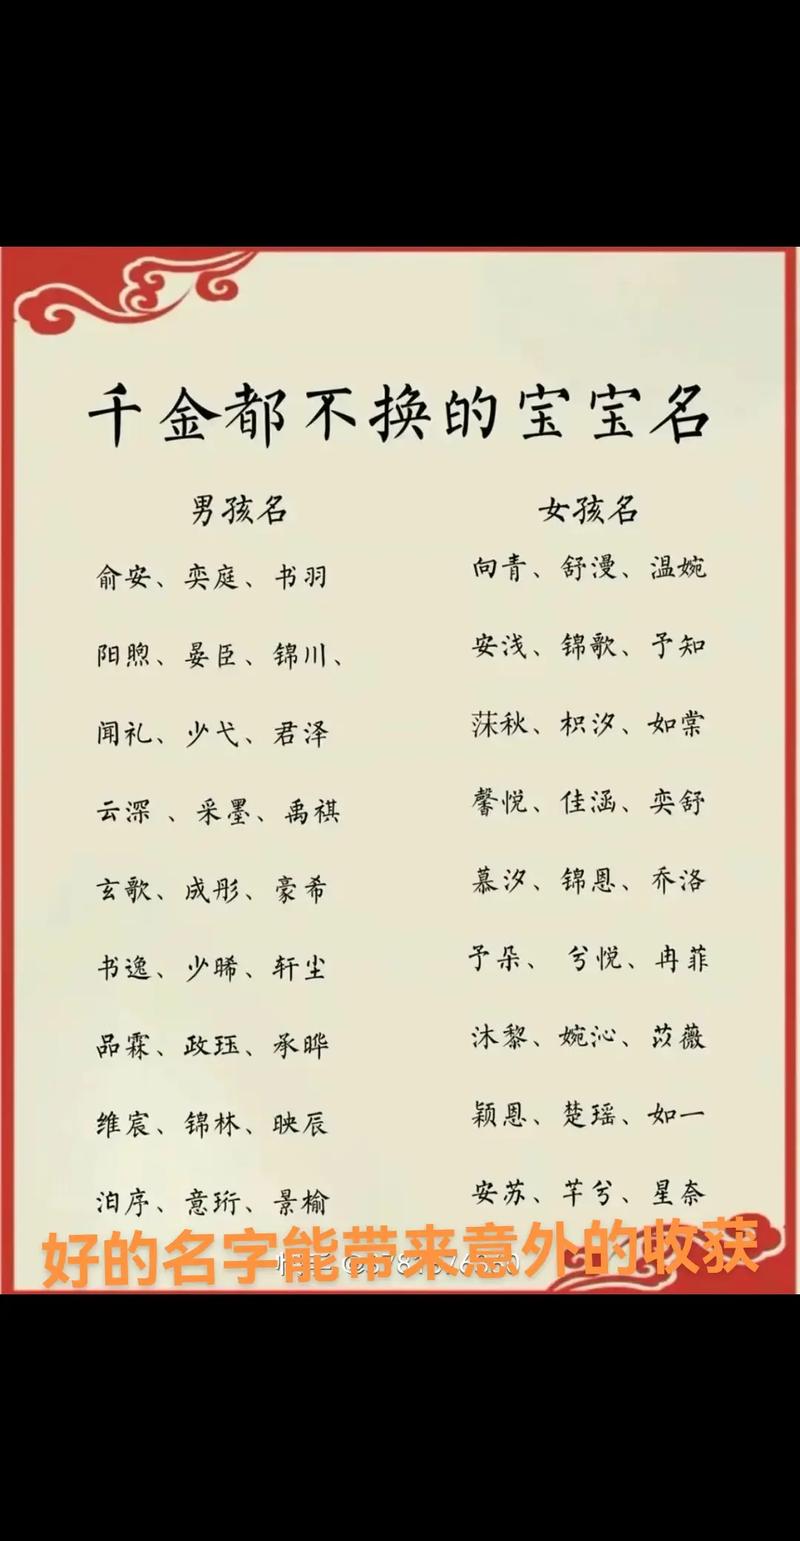 千金都不换的宝宝名
男孩名
俞安、奕庭、书羽
阳煦、晏臣、锦川、
闻礼、少弋、君泽
云深、采墨、禹祺
玄歌、成彤、豪希
书逸、少晞、轩尘
品霖、政珏、承晔
维宸、锦林、映辰
泊序、意珩、景榆
女孩名
向青、舒漫、温婉
安浅、锦歌、予知
莯秋、枳汐、如棠
馨悦、佳涵、奕舒
慕汐、锦恩、乔洛
予朵、兮悦、冉菲
沐黎、婉沁、苡薇
颖恩、楚瑶、如一
安苏、芊兮、星奈
好的名字能带来意外的收获